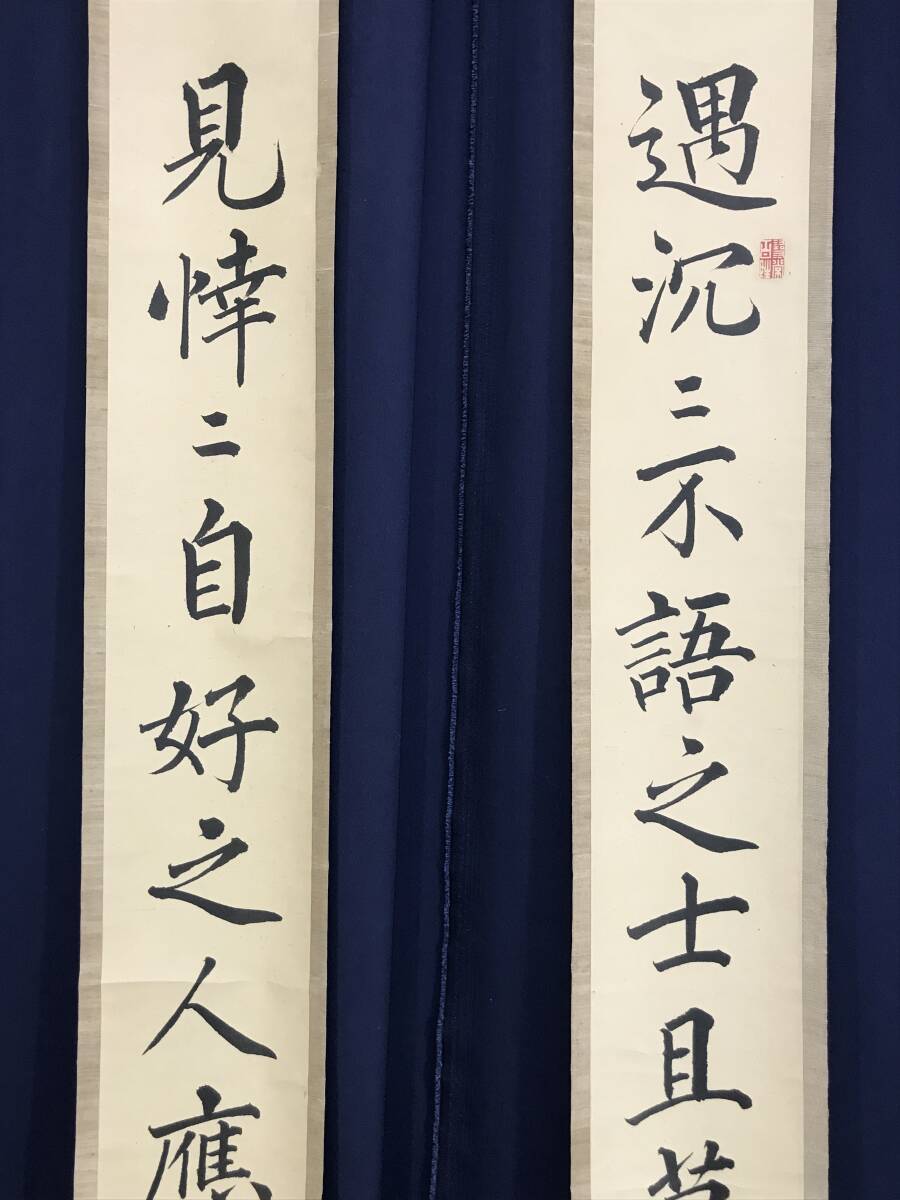 遇沉二不語之士且莫
見悻二自好之人應